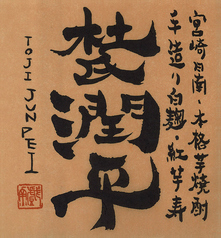 宮崎日南、本格芋焼酎
手造り白麹・紅芋寿
杜氏潤平
TOJI JUNPEI